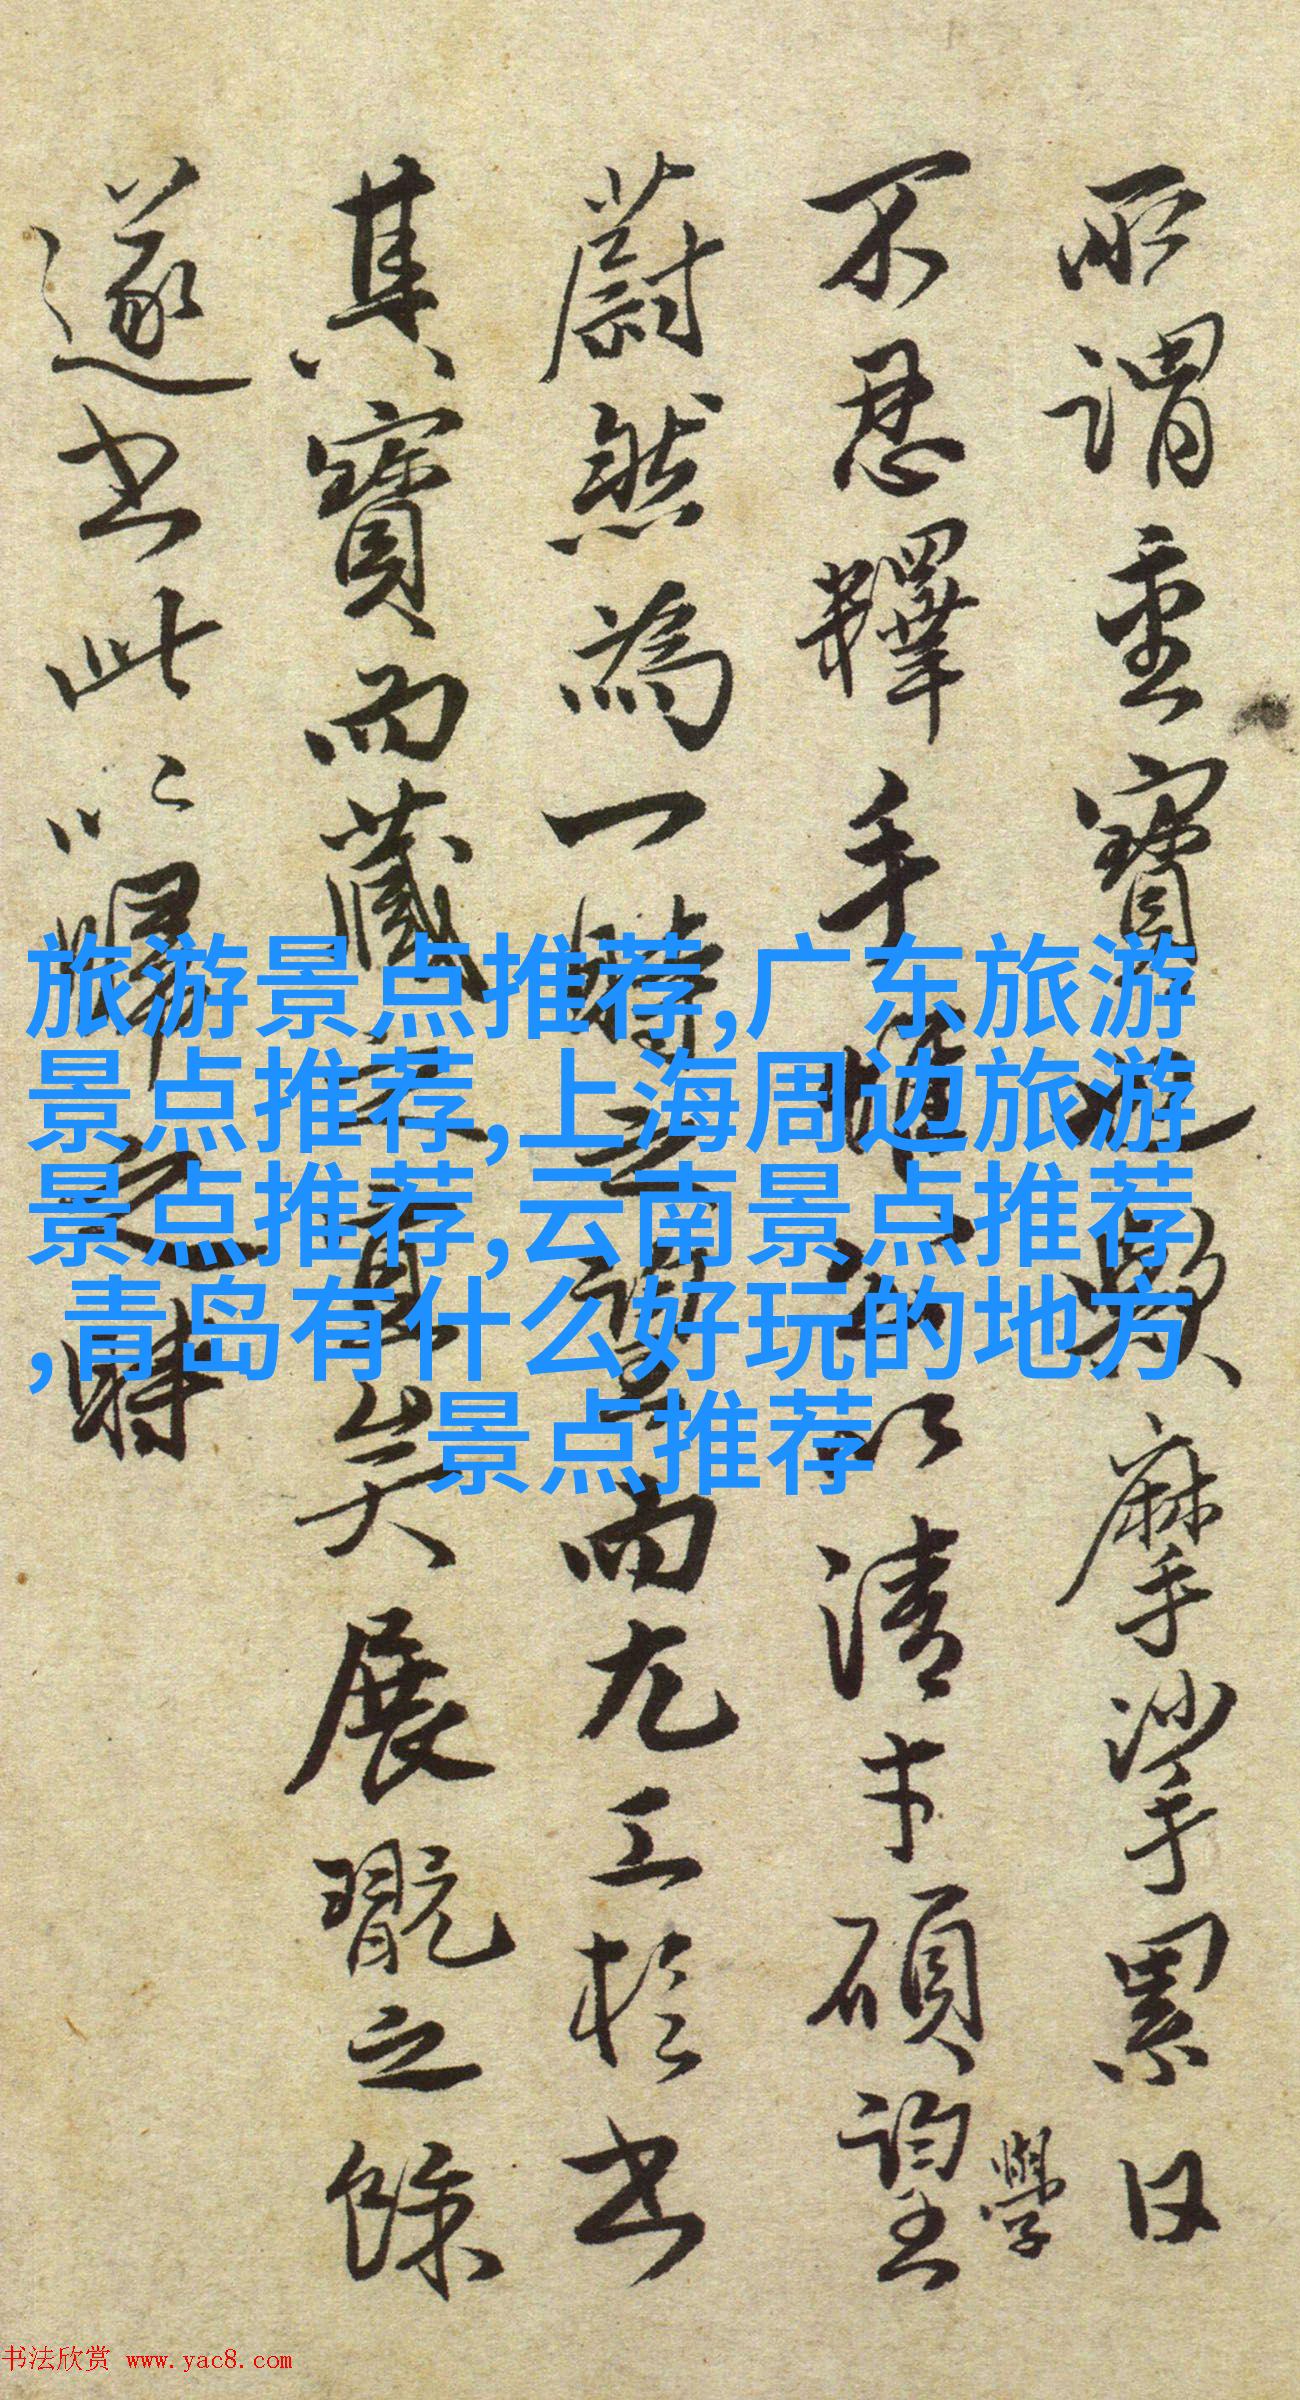 所谓重寶也歟摩挲累日
不忍釋手惟
清才碩望
學
蔚然為一時之譽而尤工於書
其寶而藏之宜矣展翫之餘
遂書此以歸之時
旅游景点推荐,广东旅游
景点推荐,上海周边旅游
景点推荐,云南景点推荐
,青岛有什么好玩的地方
景点推荐
书法欣赏 www.yac8.com